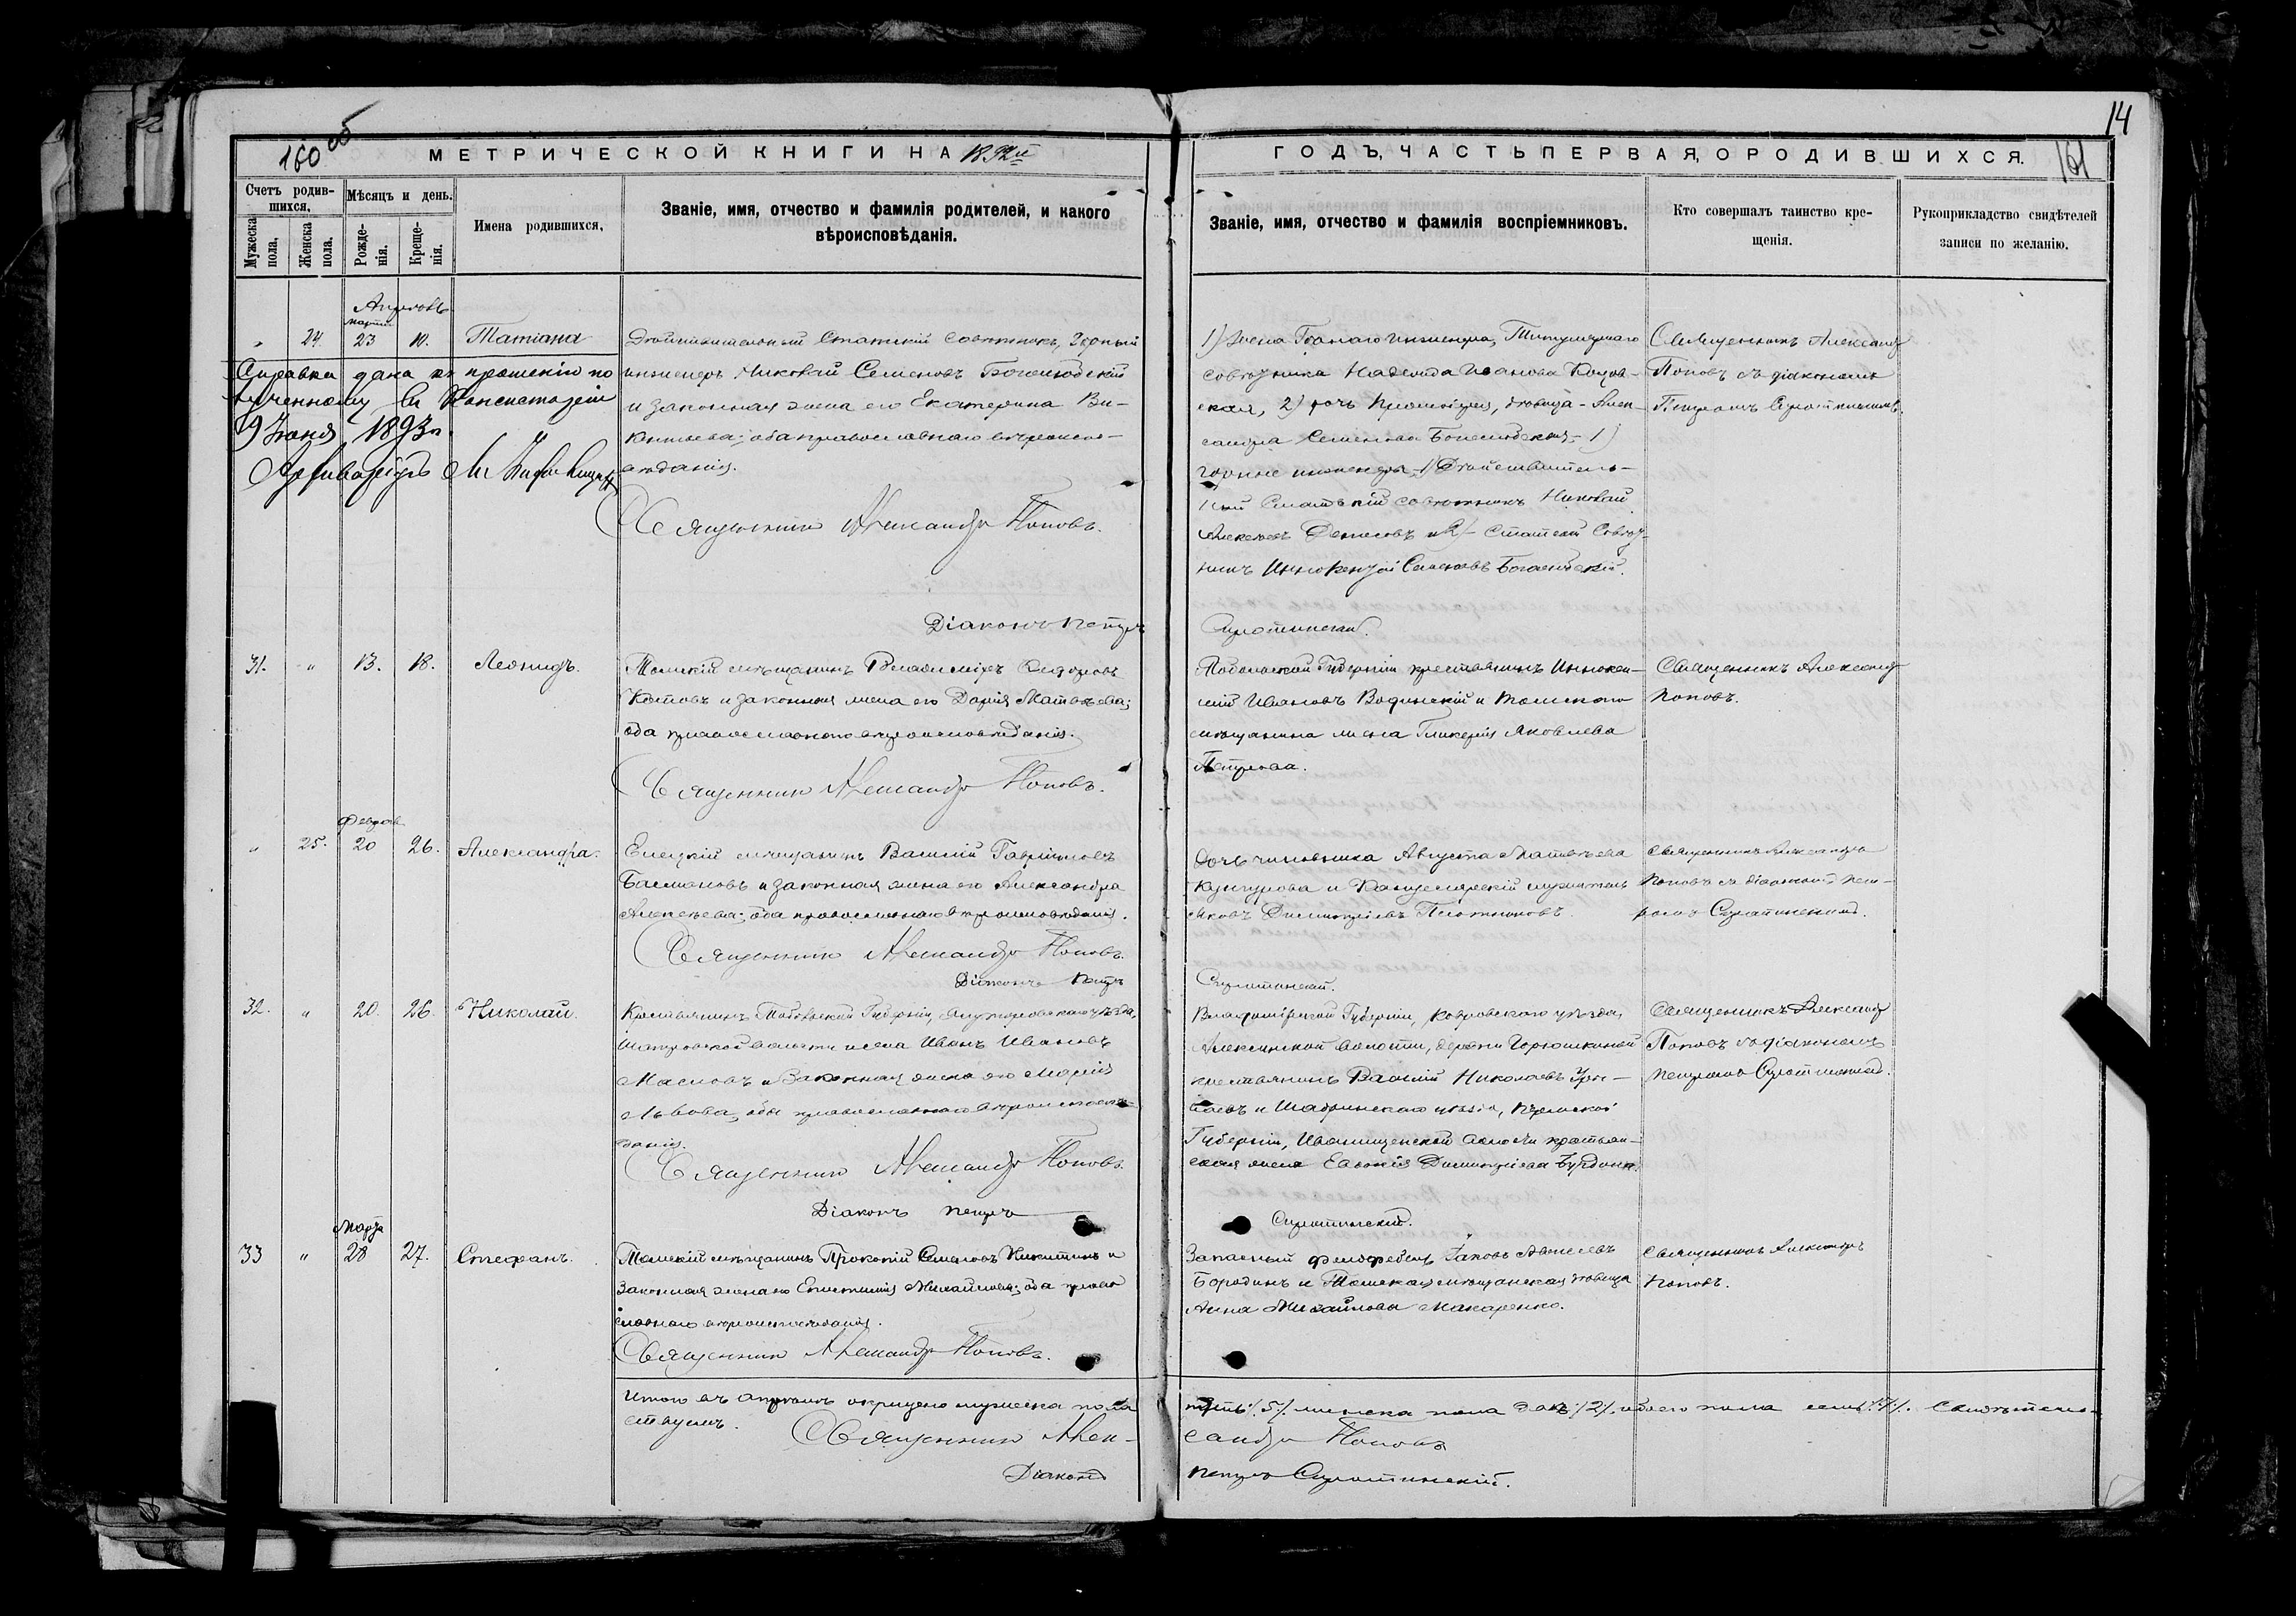 14
160 об
МЕТРИЧЕСКОЙ КНИГИ НА 1892й
ГОДЪ, ЧАСТЬ ПЕРВАЯ, О РОДИВШИХСЯ.
161
Счетъ родив-
шихся.
Мужеска
пола.
Женска
пола.
Мѣсяцъ и день.
Рожде-
нія.
Креще-
нія.
Имена родившихся.
Званіе, имя, отчество и фамилія родителей, и какого
вѣроисповѣданія.
Званіе, имя, отчество и фамилія воспріемниковъ.
Кто совершалъ таинство кре-
щенія.
Рукоприкладство свидѣтелей
записи по желанію.
Апрѣль
марта
" 24. 23 10. Татіана
Дѣйствительный Статскій Совѣтникъ, Горный
инженеръ Николай Семеновъ Боголюбскій
и законная жена его Екатерина Ви-
кентьева; оба православнаго вѣроиспо-
вѣданія.
Священникъ Александръ Поповъ.
Діаконъ Петръ
Справка дана по прошенію по
лученному въ Консисторіи
9 Іюня 1893 г.
Архиваріусъ
1) Жена Горнаго инженера, Титулярнаго
совѣтника Надежда Иванова
2) дочь дѣвица - Алек-
сандра Семенова Боголюбская; 1)
горные инженеры 1) Дѣйствитель-
ный Статскій совѣтникъ Николай
Алексѣевъ Денисовъ и 2) Статскій Совѣт-
никъ Иннокентій Семеновъ Боголюбскій.
Сиротинскій.
Священникъ Александръ
Поповъ съ діакономъ
Петромъ Сиротинскимъ.
31. " 13. 18. Леонидъ.
Томскій мѣщанинъ Владиміръ Сидоровъ
Котовъ и законная жена его Дарія Матвѣева;
оба православнаго вѣроисповѣданія.
Священникъ Александръ Поповъ.
Тобольской Губерніи крестьянинъ Иннокен-
тій Ивановъ Водинскій и томскаго
мѣщанина жена Гликерія Яковлева
Петрова.
Священникъ Александръ
Поповъ.
Феврал
" 25. 20 26. Александра.
Елецкій мѣщанинъ Василій Гавріиловъ
Басмановъ и законная жена его Александра
Алексѣева; оба православнаго вѣроисповѣданія.
Священникъ Александръ Поповъ.
Діаконъ Петръ
Дочь чиновника Августа Матвѣева
Кунгурова и Канцелярскій служитель
Яковъ Димитріевъ Плотниковъ.
Сиротинскій.
Священникъ Александръ
Поповъ съ діакономъ Пет-
ромъ Сиротинскимъ.
32. " 20. 26. Николай.
Крестьянинъ Тобольской Губерніи, Ялуторовскаго уѣзда,
Шатровской волости и села Иванъ Ивановъ
Масловъ и законная жена его Марія
Львова, оба православнаго вѣроисповѣ-
данія.
Священникъ Александръ Поповъ.
Діаконъ Петръ
Владимірской Губерніи, Ковровскаго уѣзда,
Алексинской волости, деревни Горюшкиной
крестьянинъ Василій Николаевъ
и Шадринскаго уѣзда, Пермской
Губерніи, Иванищенской волости крестьян-
ская жена Евдокія Димитріева
Сиротинскій.
Священникъ Александръ
Поповъ съ діакономъ
Петромъ Сиротинскимъ.
Марта
33 " 28 27. Стефанъ.
Томскій мѣщанинъ Прокопій Семеновъ Никитинъ и
законная жена его Епистимія Михайлова; оба право
славнаго вѣроисповѣданія.
Священникъ Александръ Поповъ.
Запасный фельдфебель Іаковъ
Бородинъ и Томская мѣщанская дѣвица
Анна Михайлова Макаренко.
Священникъ Александръ
Поповъ.
Итого въ апрѣлѣ окрещено мужеска пола
пять /5/. женска пола два /2/. обоего пола семь /7/. Свидѣтель-
ствуемъ.
Священникъ Алек-
сандръ Поповъ
Діаконъ
Петръ Сиротинскій.